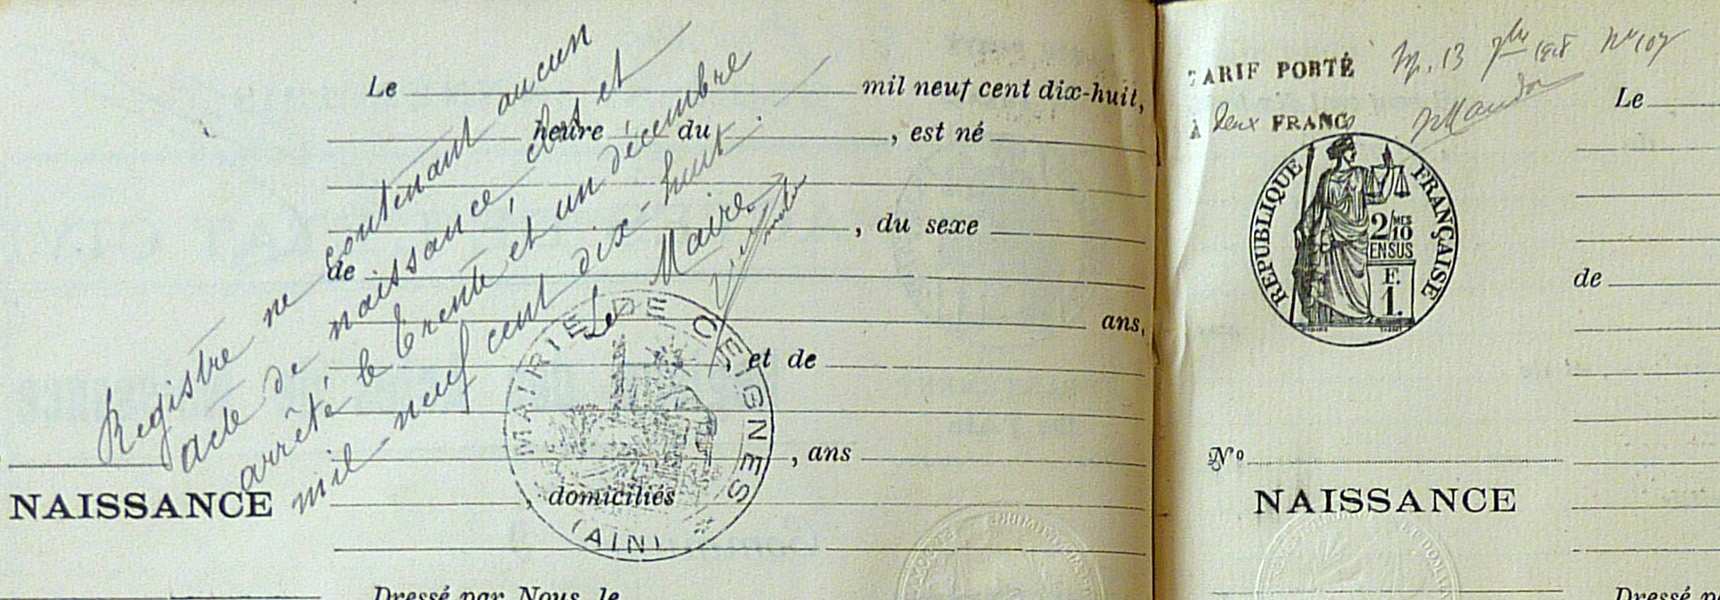 Le mil neuf cent dix-huit,
heure du , est né
, du sexe
de
ans,
, et de
, ans
domiciliés
Dressé par Nous, le
NAISSANCE
Registre ne contenant aucun
acte de naissance, clos et
arrêté le trente et un décembre
mil neuf cent dix-huit
Le Maire
MAIRIE DE CEIGNES
(AIN)
TARIF PORTÉ
À deux FRANCS
13 7bre 1918 No 107
RÉPUBLIQUE FRANÇAISE
2/10 MES
EN SUS
F.
1.
Le
de
No
NAISSANCE